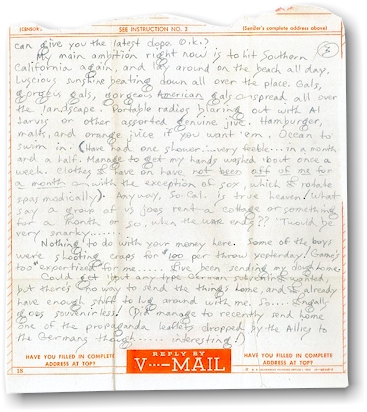 CENSOR:
SEE INSTRUCTION NO. 2
(Sender's complete address above)
can give you the latest dope. O.k.?
3
My main ambition right now is to hit Southern
California again, and lie around on the beach all day.
Luscious sunshine beating down all over the place. Gals,
gorgeous gals, gorgeous American gals - spread all over
the landscape. Portable radios blaring out with Al
Jarvis or other assorted genuine jive. Hamburger,
malts, and orange juice if you want 'em. Ocean to
swim in. (Have had one shower... very feeble... in a month
and a half. Manage to get my hands washed 'bout once a
week. Clothes I have on have not been off of me for
a month - with the exception of sox, which I rotate
spasmodically). Anyway, So. Cal. is true heaven! What
say a group of us Joes rent a cottage or something
for a month or so, when the war ends?? 'Twould be
very snarky.....
Nothing to do with your money here. Some of the boys
were shooting craps for $100 per throw yesterday! Game's
too "expertised" for me..... I've been sending my dough home.
Could get just any type German souvenirs wanted,
but there's no way to send the things home, and I already
have enough stuff to lug around with me. So.....
goes souvenirless! (Did manage to recently send home
one of the propaganda leaflets dropped by the Allies to
the Germans though..... interesting!)
HAVE YOU FILLED IN COMPLETE
ADDRESS AT TOP?
REPLY BY
V···-MAIL
HAVE YOU FILLED IN COMPLETE
ADDRESS AT TOP?